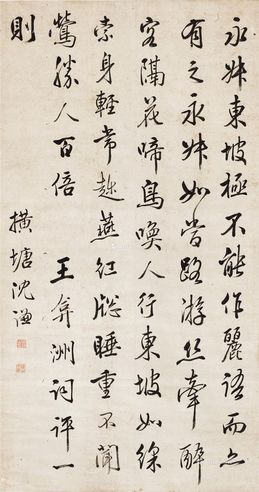 永叔東坡極不能作麗語而亦
有之永叔如當路游絲牽醉
客隔花啼鳥喚人行東坡如綵
索身輕常趁燕紅牕睡重不聞
鶯勝人百倍 王弇洲詞評一
則
橫塘沈謙